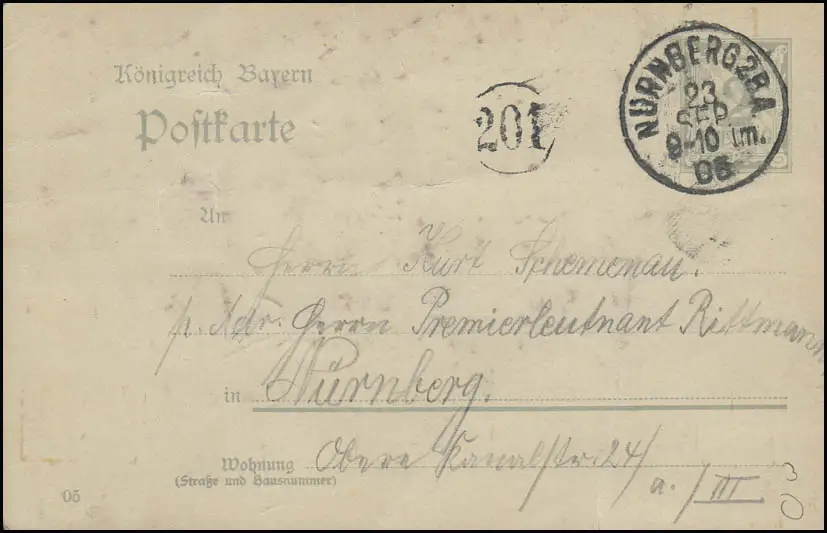 Königreich Bayern
Postkarte
201
NÜRNBERG 2 B.A.
23
SEP
9-10 Vm.
05
An
Herrn Kurt Schemenau.
p. Adr. Herrn Premierleutnant Rittmann
in Nürnberg.
Wohnung Obere Kanalstr. 24/
(Straße und Hausnummer)
a./III
05